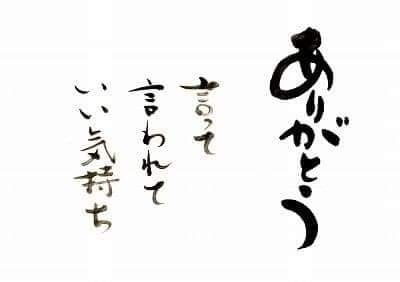 ありがとう
言って
言われて
いい気持ち